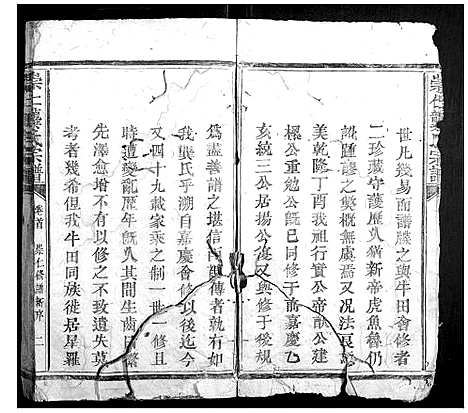 世凡幾易而譜牒之與牛田會修者
二珍藏守護歷久猶新帝虎魚魯仍
訛踵謬之獘概無虞焉又况法良意
美乾隆丁酉我祖行實公帝猷公建
樑公重勉公旣已同修于前嘉慶乙
亥統三公居揚公復又與修于後規
爲盡善譜之堪信而堪傳者就有如
我龔氏乎溯自嘉慶會修以後迄今
又四十九載家乘之制一世一修且
時遭變亂歷年旣久其間生齒日繁
先澤愈增有以修之不遂致失莫
考者幾希但我牛田同族徙居星羅
崇仁龔氏宗譜
卷首
崇仁修譜新序
二
崇仁龔氏宗譜